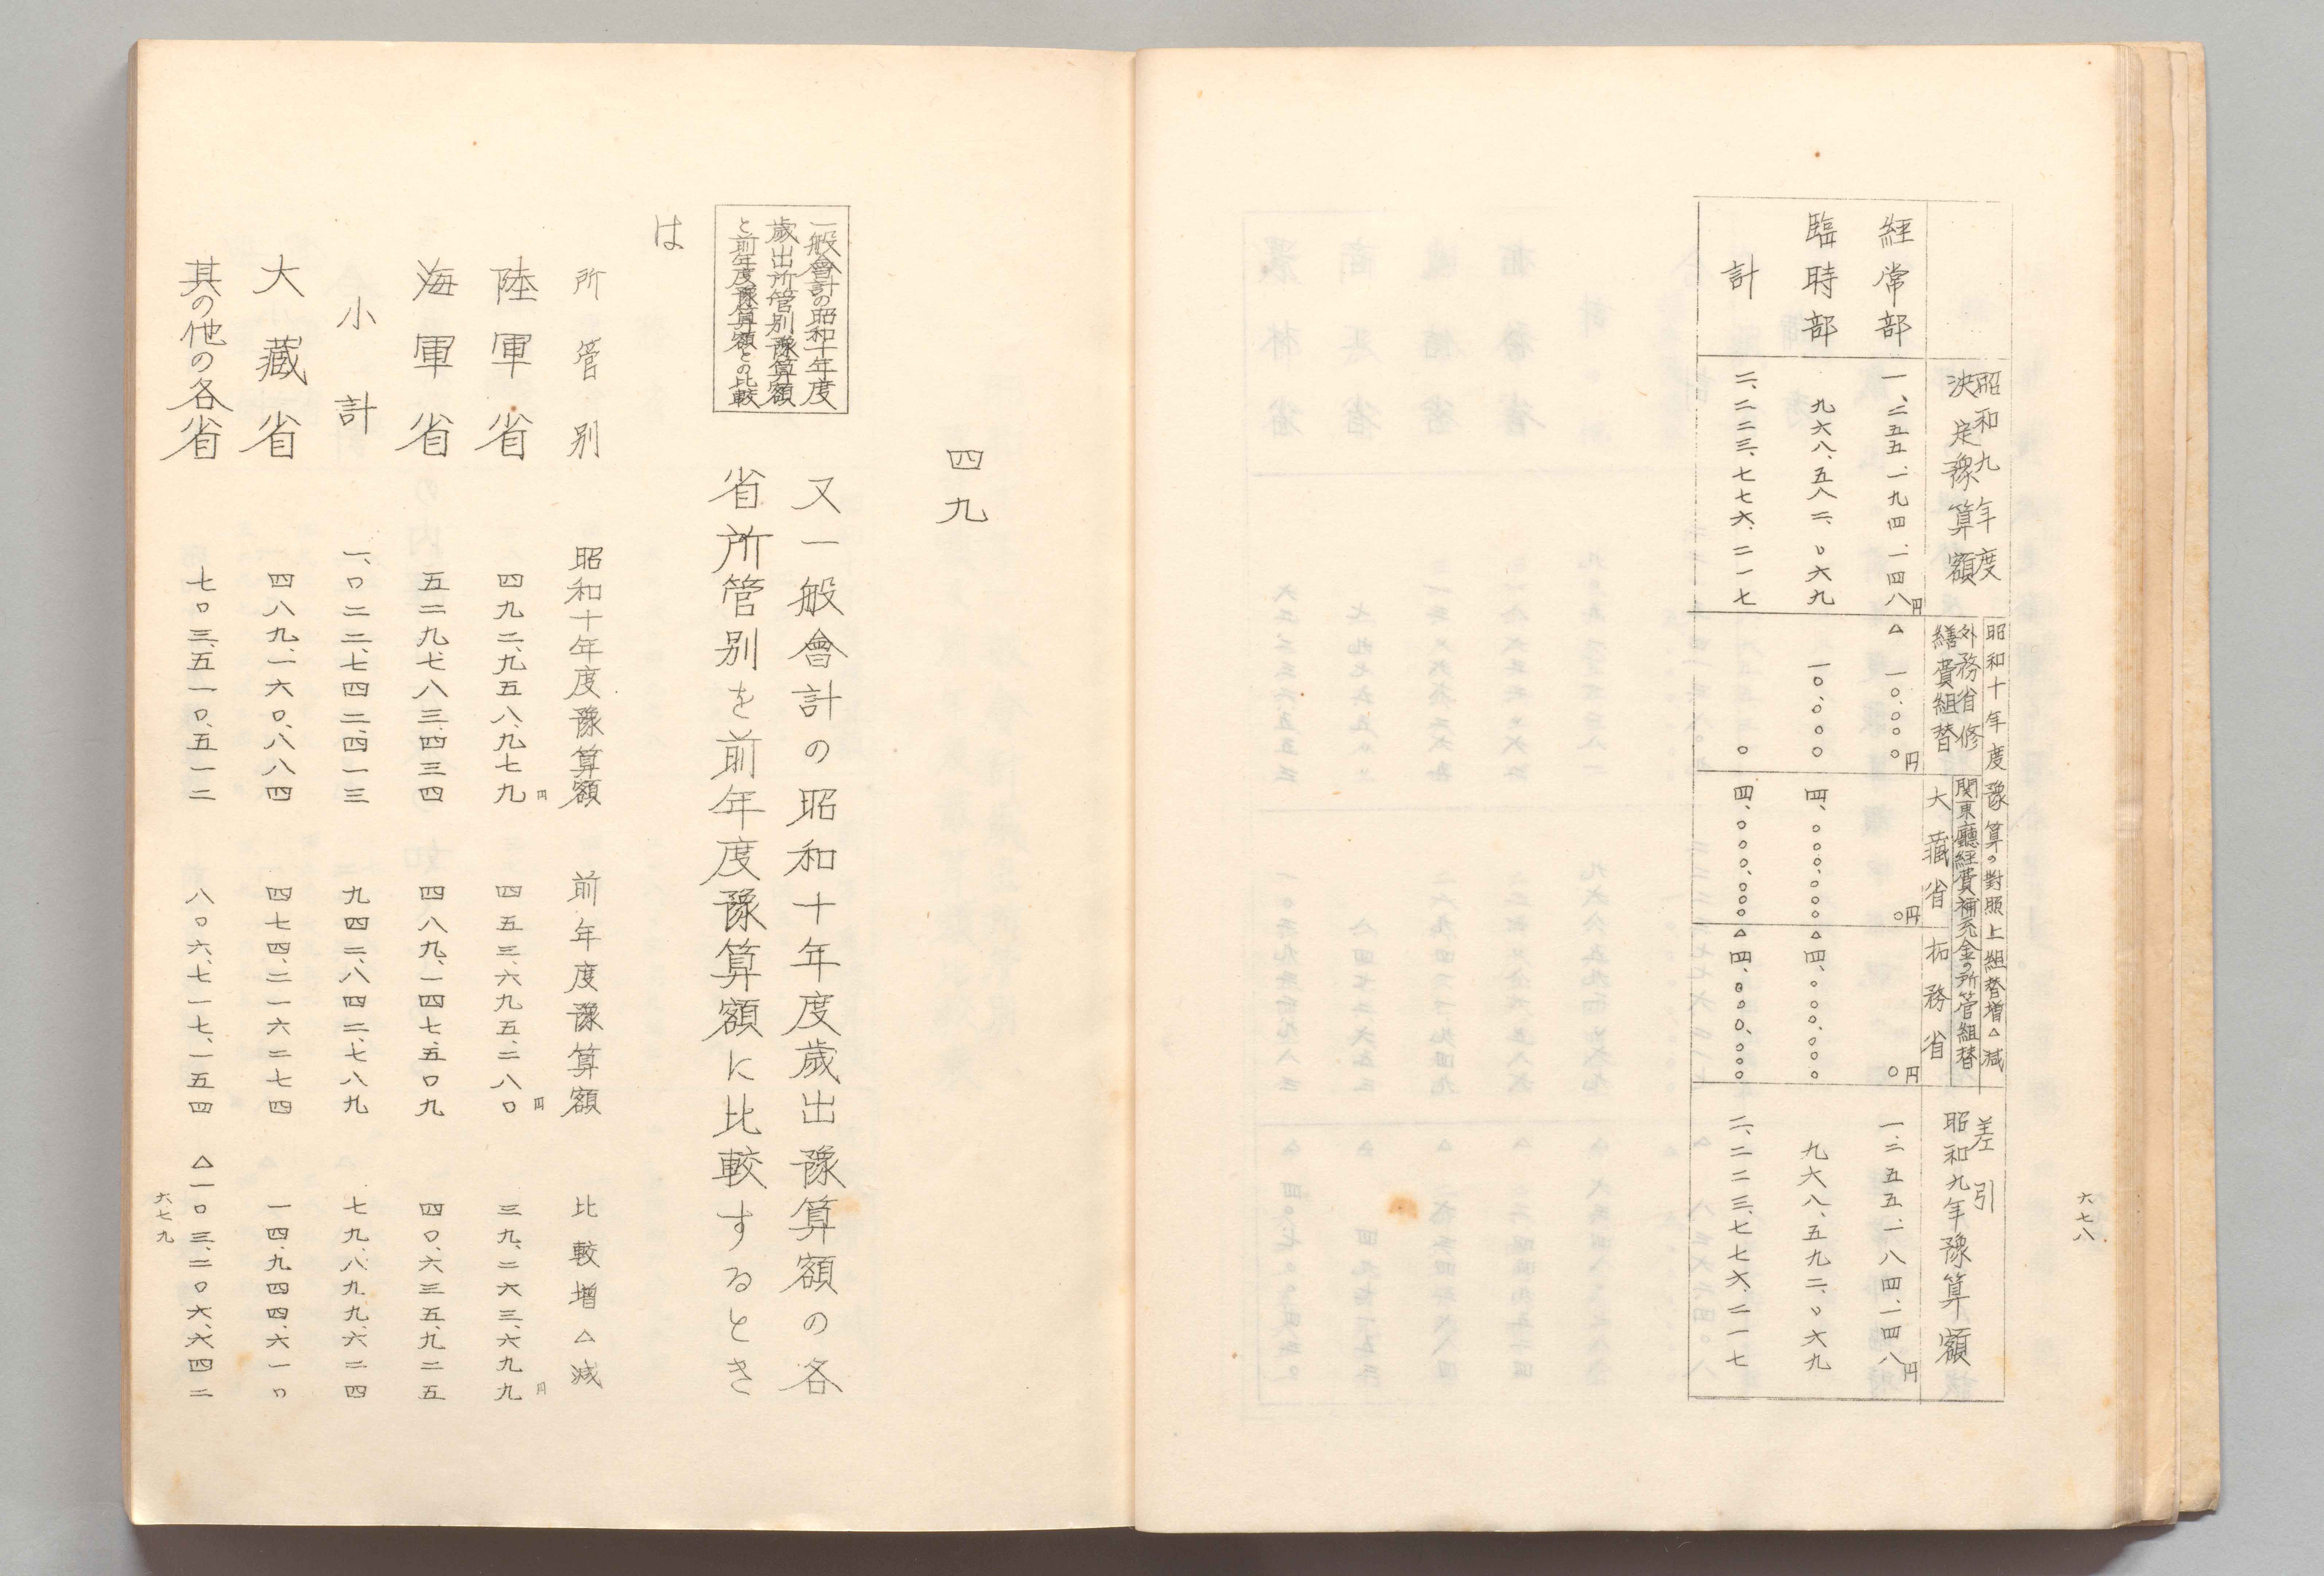 六七八
昭和九年度
決定豫算額
昭和十年度豫算の對照上組替増△減
外務省修
繕費組替
関東廳経費補充金の所管組替
大藏省
拓務省
差引
昭和九年豫算額
経常部 一、二五五、一九四、一四八円 △一〇、〇〇〇円 〇円 〇円 一、二五五、一八四、一四八円
臨時部 九六八、五八二、〇六九 一〇、〇〇〇 四、〇〇〇、〇〇〇 △四、〇〇〇、〇〇〇 九六八、五九二、〇六九
計 二、二二三、七七六、二一七 〇 四、〇〇〇、〇〇〇 △四、〇〇〇、〇〇〇 二、二二三、七七六、二一七
四九
一般會計の昭和十年度
歳出所管別豫算額
と前年度豫算額との比較
又一般會計の昭和十年度歳出豫算額の各
省所管別を前年度豫算額に比較するとき
は
所管別 昭和十年度豫算額 前年度豫算額 比較増△減
陸軍省 四九二、九五八、九七九円 四五三、六九五、二八〇円 三九、二六三、六九九円
海軍省 五二九、七八三、四三四 四八九、一四七、五〇九 四〇、六三五、九二五
小計 一、〇二二、七四二、四一三 九四二、八四二、七八九 七九、八九九、六二四
大藏省 四八九、一六〇、八八四 四七四、二一六二七四 一四、九四四、六一〇
其の他の各省 七〇三、五一〇、五一二 八〇六、七一七、一五四 △一〇三、二〇六、六四二
六七九